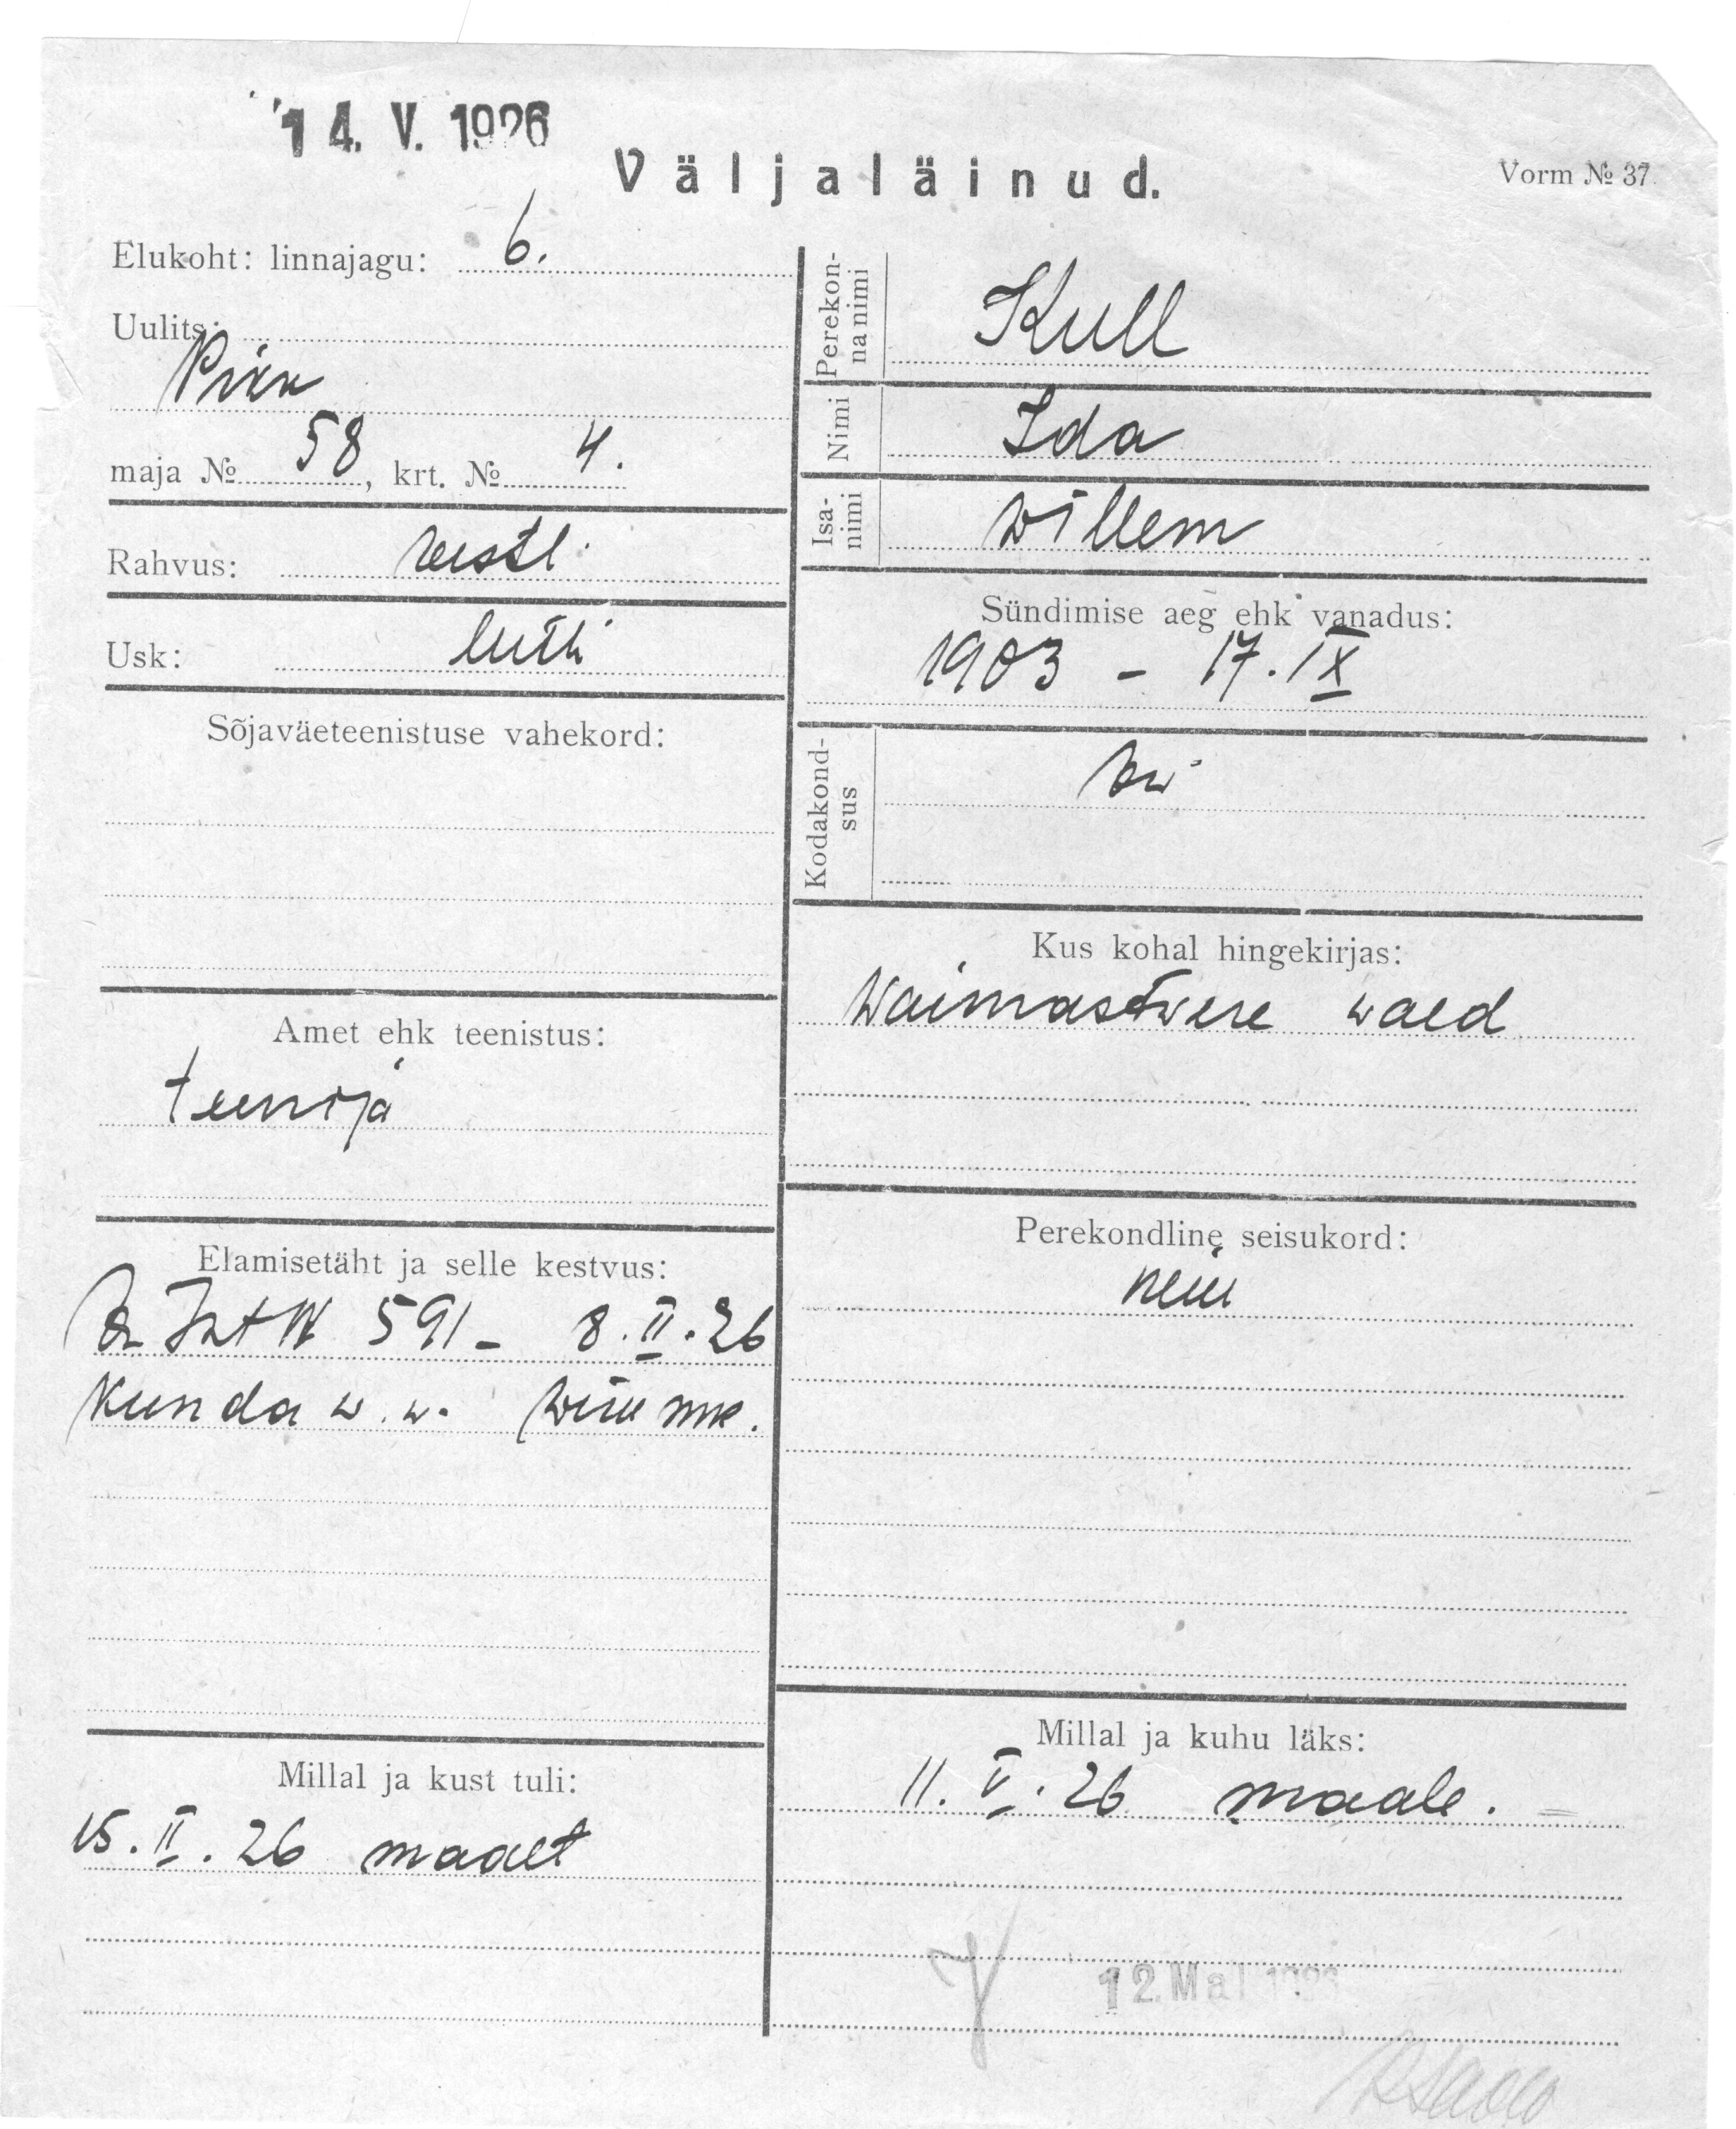 14. V. 1926
Väljaläinud.
Vorm № 37
Elukoht: linnajagu: 6.
Uulits:
Pikk
maja № 58, krt. № 4.
Rahvus: eestl.
Usk: luth
Sõjaväeteenistuse vahekord:
Amet ehk teenistus:
teenija
Elamisetäht ja selle kestvus:
591 - 8.II.26
Kunda w.w. Wiru mk.
Millal ja kust tuli:
15.II.26 maalt
Perekonna nimi
Kull
Nimi
Ida
Isa-
nimi
Willem
Sündimise aeg ehk vanadus:
1903 - 17.IX
Kodakond-
sus
Kus kohal hingekirjas:
Waimastwere wald
Perekondline seisukord:
neiu
Millal ja kuhu läks:
11.V.26 maale.
12. Mai 1926